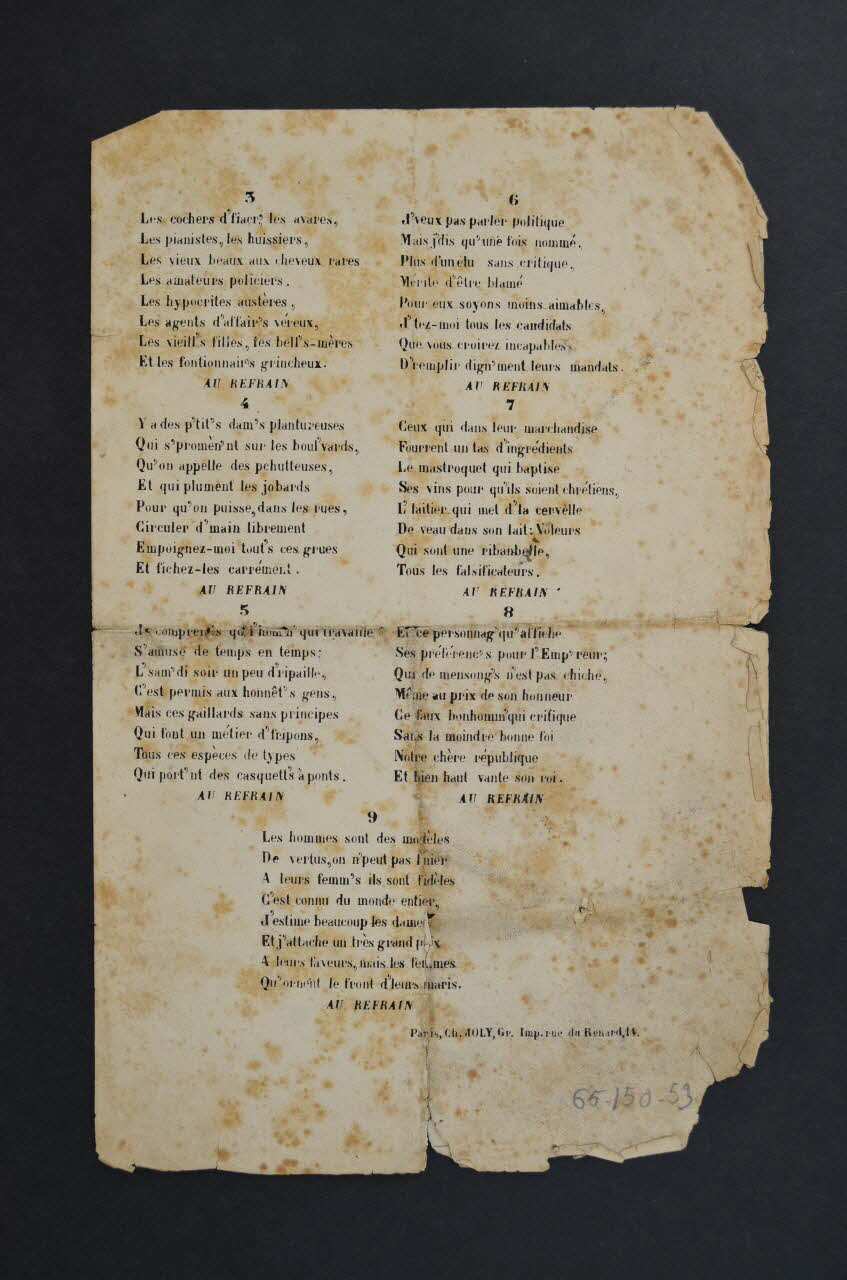 3
Les cochers d'fiacr' les avares,
Les pianistes, les huissiers,
Les vieux beaux aux cheveux rares
Les amateurs policiers.
Les hypocrites austères,
Les agents d'affair's véreux,
Les vieill's filles, les bell's-mères
Et les fontionnair's grincheux.
AU REFRAIN
4
Y a des p'tit's dam's plantureuses
Qui s'promèn'nt sur les boul'vards,
Qu'on appelle des pchutteuses,
Et qui plument les jobards
Pour qu'on puisse, dans les rues,
Circuler d'main librement
Empoignez-moi tout's ces grues
Et fichez-les carrément.
AU REFRAIN
5
Je comprends qu'l'homm' qui travaille
S'amuse de temps en temps;
L'sam'di soir un peu d'ripaille,
C'est permis aux honnêt's gens,
Mais ces gaillards sans principes
Qui font un métier d'fripons,
Tous ces espèces de types
Qui port'nt des casquett's à ponts.
AU REFRAIN
6
J'veux pas parler politique
Mais j'dis qu'une fois nommé,
Plus d'un élu sans critique,
Mérite d'être blamé
Pour eux soyons moins aimables,
J'tez-moi tous les candidats
Que vous croirez incapables
D'remplir dign'ment leurs mandats.
AU REFRAIN
7
Ceux qui dans leur marchandise
Fourrent un tas d'ingrédients
Le mastroquet qui baptise
Ses vins pour qu'ils soient chrétiens,
L'laitier qui met d'la cervelle
De veau dans son lait; Voleurs
Qui sont une ribanbelle,
Tous les falsificateurs.
AU REFRAIN
8
Et ce personnag' qu'affiche
Ses préférenc's pour l'Emp'reur;
Qui de mensong's n'est pas chiche,
Même au prix de son honneur
Ce faux bonhomm'qui critique
Sans la moindre bonne foi
Notre chère république
Et bien haut vante son roi.
AU REFRAIN
9
Les hommes sont des modèles
De vertus, on n'peut pas l'nier
A leurs femm's ils sont fidèles
C'est connu du monde entier,
J'estime beaucoup les dames
Et j'attache un très grand prix
A leurs faveurs, mais les femmes
Qu'ornent le front d'leurs maris.
AU REFRAIN
Paris, Ch. JOLY, Gr. Imp. rue du Renard, 14.
65-150-53